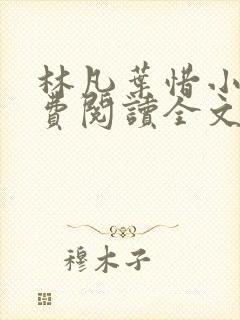 林凡葉惜小
費閱讀全文
穆木子